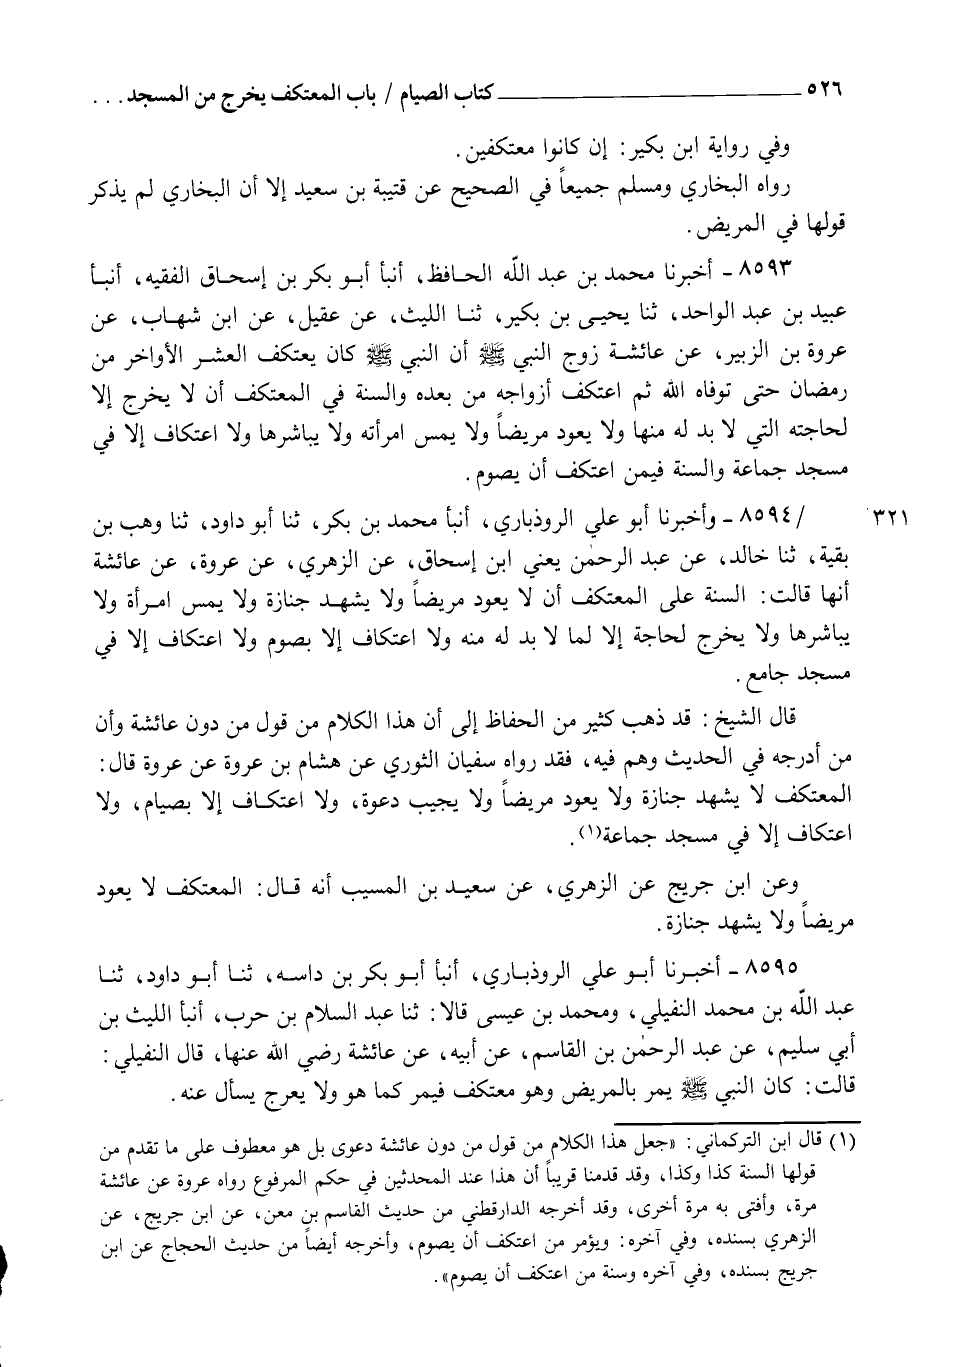 ٥٢٦ ــــــــــ كتاب الصيام / باب المعتكف يخرج من المسجد . . .
وفي رواية ابن بكير: إن كانوا معتكفين.
رواه البخاري ومسلم جميعاً في الصحيح عن قتيبة بن سعيد إلا أن البخاري لم يذكر
قولها في المريض.
٨٥٩٣ ـ أخبرنا محمد بن عبد الله الحافظ، أنبأ أبو بكر بن إسحاق الفقيه، أنبأ
عبيد بن عبد الواحد، ثنا يحيى بن بكير، ثنا الليث، عن عقيل، عن ابن شهاب، عن
عروة بن الزبير، عن عائشة زوج النبي ﷺ أن النبي ﷺ كان يعتكف العشر الأواخر من
رمضان حتى توفاه الله ثم اعتكف أزواجه من بعده والسنة في المعتكف أن لا يخرج إلا
لحاجته التي لا بد له منها ولا يعود مريضاً ولا يمس امرأته ولا يباشرها ولا اعتكاف إلا في
مسجد جماعة والسنة فيمن اعتكف أن يصوم.
٣٢١ / ٨٥٩٤ ـ وأخبرنا أبو علي الروذباري، أنبأ محمد بن بكر، ثنا أبو داود، ثنا وهب بن
بقية، ثنا خالد، عن عبد الرحمٰن يعني ابن إسحاق، عن الزهري، عن عروة، عن عائشة
أنها قالت: السنة على المعتكف أن لا يعود مريضاً ولا يشهد جنازة ولا يمس امرأة ولا
يباشرها ولا يخرج لحاجة إلا لما لا بد له منه ولا اعتكاف إلا بصوم ولا اعتكاف إلا في
مسجد جامع.
قال الشيخ: قد ذهب كثير من الحفاظ إلى أن هذا الكلام من قول من دون عائشة وأن
من أدرجه في الحديث وهم فيه، فقد رواه سفيان الثوري عن هشام بن عروة عن عروة قال:
المعتكف لا يشهد جنازة ولا يعود مريضاً ولا يجيب دعوة، ولا اعتكاف إلا بصيام، ولا
اعتكاف إلا في مسجد جماعة(١).
وعن ابن جريج عن الزهري، عن سعيد بن المسيب أنه قال: المعتكف لا يعود
مريضاً ولا يشهد جنازة.
٨٥٩٥ ـ أخبرنا أبو علي الروذباري، أنبأ أبو بكر بن داسه، ثنا أبو داود، ثنا
عبد الله بن محمد النفيلي، ومحمد بن عيسى قالا: ثنا عبد السلام بن حرب، أنبأ الليث بن
أبي سليم، عن عبد الرحمٰن بن القاسم، عن أبيه، عن عائشة رضي الله عنها، قال النفيلي:
قالت: كان النبي ﷺ يمر بالمريض وهو معتكف فيمر كما هو ولا يعرج يسأل عنه.
(١) قال ابن التركماني: «جعل هذا الكلام من قول من دون عائشة دعوى بل هو معطوف على ما تقدم من
قولها السنة كذا وكذا، وقد قدمنا قريباً أن هذا عند المحدثين في حكم المرفوع رواه عروة عن عائشة
مرة، وأفتى به مرة أخرى، وقد أخرجه الدارقطني من حديث القاسم بن معن، عن ابن جريج، عن
الزهري بسنده، وفي آخره: ويؤمر من اعتكف أن يصوم، وأخرجه أيضاً من حديث الحجاج عن ابن
جريج بسنده، وفي آخره وسنة من اعتكف أن يصوم».